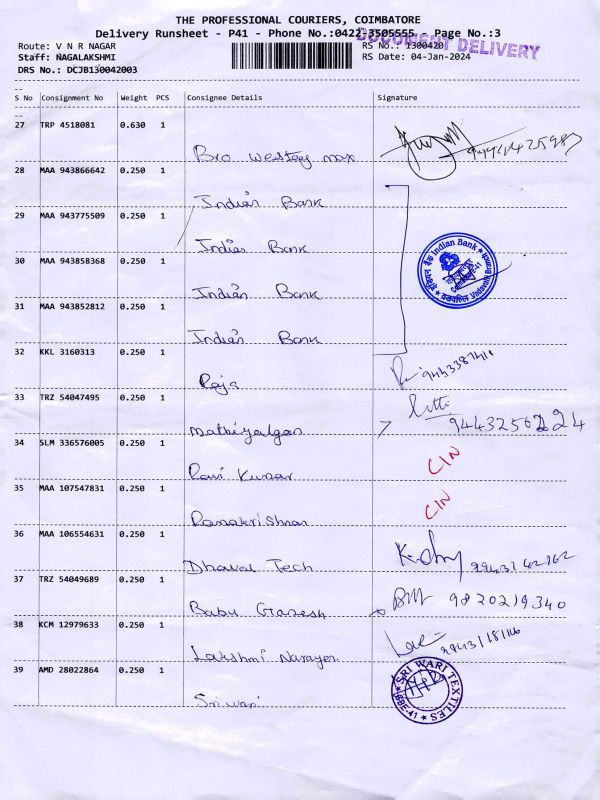 THE PROFESSIONAL COURIERS, COIMBATORE
Delivery Runsheet - P41 - Phone No.:0422-3505555 - Page No.:3
DOCUMENT DELIVERY
Route: V N R NAGAR
RS No.: 1300420
Staff: NAGALAKSHMI
RS Date: 04-Jan-2024
DRS No.: DCJB130042003
S No Consignment No Weight PCS Consignee Details Signature
27 TRP 4518081 0.630 1
Bro. westey max
28 MAA 943866642 0.250 1
Indian Bank
29 MAA 943775509 0.250 1
Indian Bank
30 MAA 943858368 0.250 1
Indian Bank
31 MAA 943852812 0.250 1
Indian Bank
Indian Bank
Vadavalli Branch
32 KKL 3160313 0.250 1
Raja
33 TRZ 54047495 0.250 1
Mathiyalgan
34 SLM 336576005 0.250 1
Ravi Kumar CIN
35 MAA 107547831 0.250 1
Ramakrishnan CIN
36 MAA 106554631 0.250 1
Dhaval Tech
37 TRZ 54049689 0.250 1
Babu Ganesh 9820219340
38 KCM 12979633 0.250 1
Lakshmi Narayan
39 AMD 28022864 0.250 1
Sri wari
SRI WARI TEXTILES
CBE-41